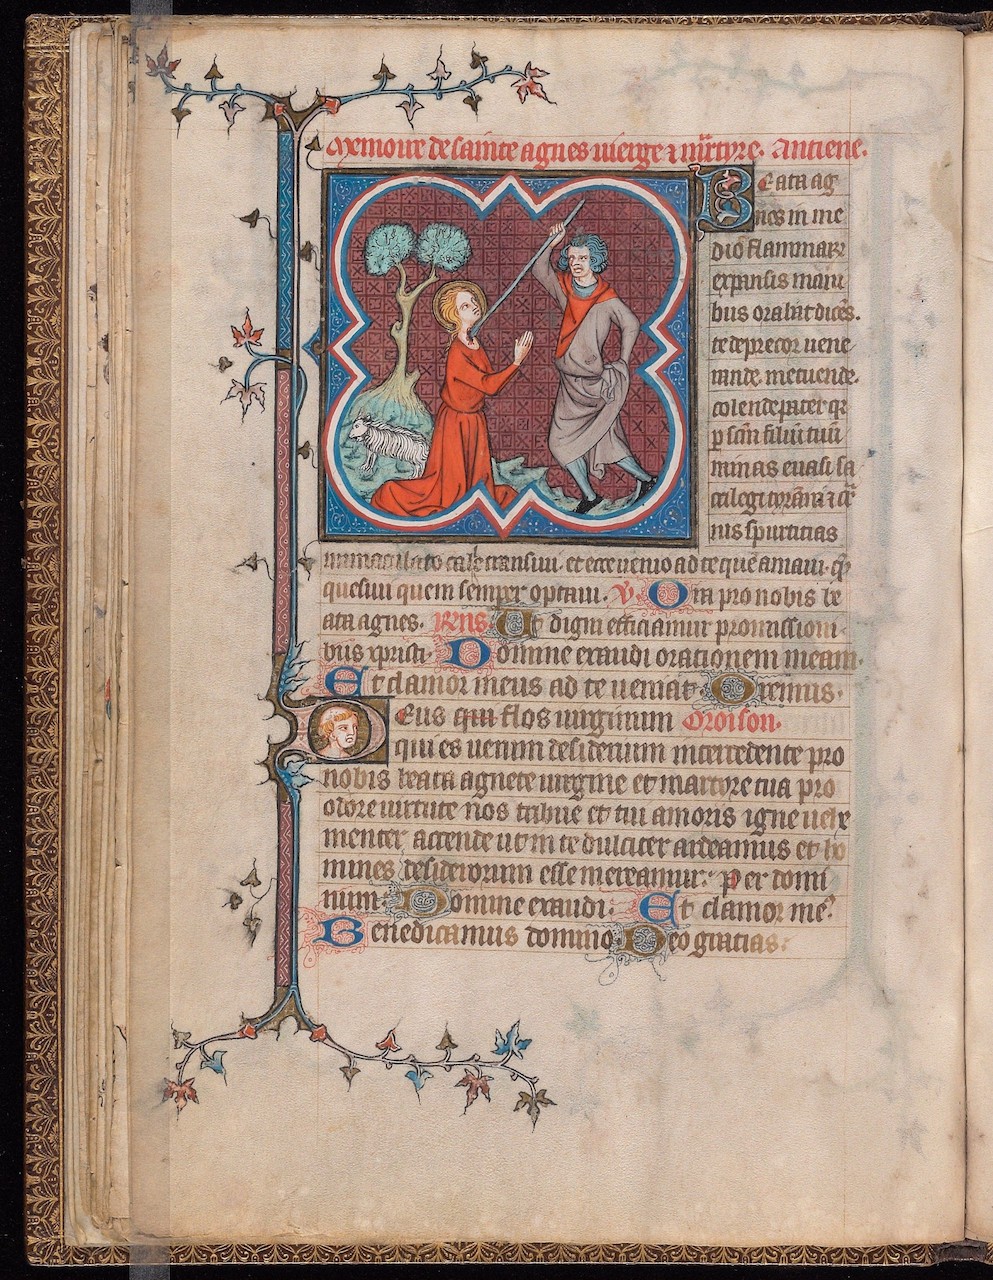 Memoire de sainte agnes uierge ⁊ mr̃tyre. Antiene.
Beata ag
nes in me
dio flammarꝝ
expansis mani
bus orabat dicẽs.
te deprecor uene
rande. metuende.
colende pater qꝛ
ꝑ scm̃ filiũ tuũ
minas euasi sa
crilegi tyrãni ⁊ car
nis spurcitias
immaculato calle transiui. et ecce uenio ad te quẽ amaui. quẽ
quesiui quem semper optaui. ℣. Ora pro nobis be
ata agnes. Rns. Ut digni efficiamur promissioni
bus xpristi. Domine exaudi orationem meam.
Et clamor meus ad te ueniat. Oremus.
Deus qui flos uirginum Oroison.
qui es uerum desiderium intercedente pro
nobis beata agnete uirgine et martyre tua pro
odore uirtute nos tribue et tui amoris igne uehe
menter accende ut in te dulciter ardeamus et ho
mines desideriorum esse mereamur. per domi
num. Domine exaudi. Et clamor meꝰ.
Benedicamus domino. Deo gratias.